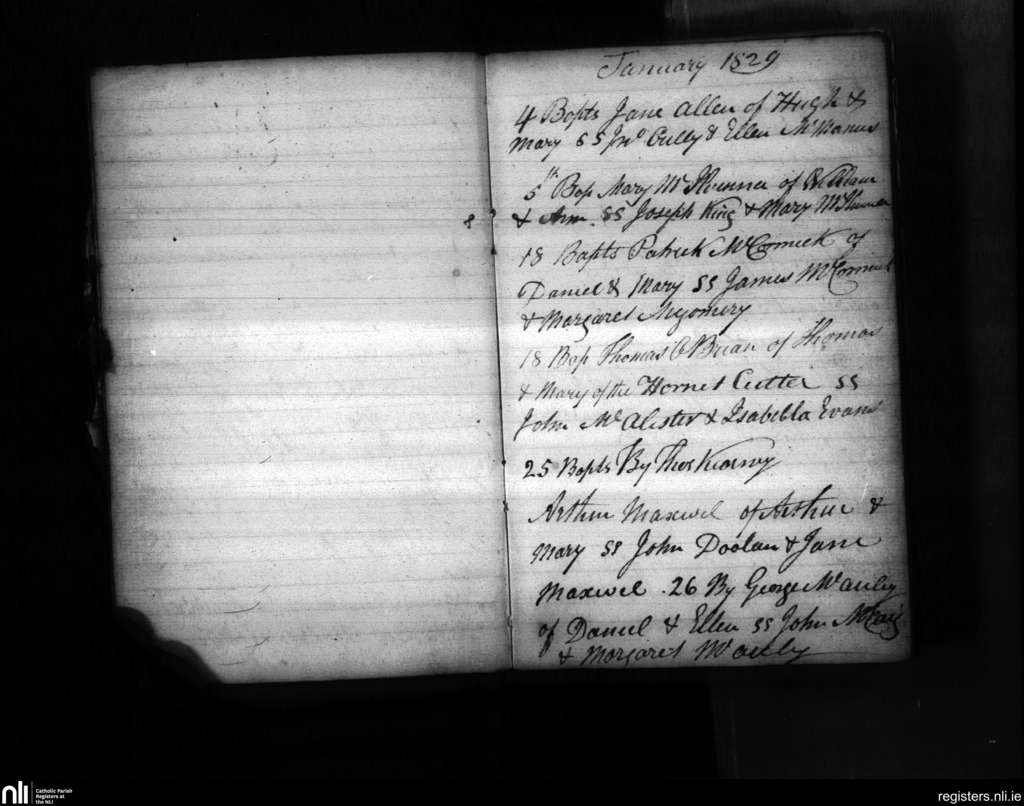 January 1829
4 Bapts Jane Allen of Hugh &
Mary SS Jno Cully & Ellen McManus
8
5th Bap Mary of Adam
& Ann SS Joseph King & Mary
18 Bapts Patrick McCormick of
Daniel & Mary SS James McCormick
& Margaret Mgomery
18 Bap Thomas OBrian of Thomas
& Mary of the Hornet Cutter SS
John McAlister & Isabella Evans
25 Bapts By Thos Kearney
Arthur Maxwel of Arthur &
Mary SS John Doolan & Jane
Maxwel . 26 By George McAuley
of Daniel & Ellen SS John McCraig
& Margaret McAuly
nli
Catholic Parish
Registers at
the NLI
registers.nli.ie